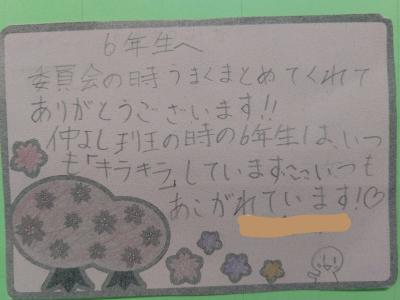 6年生へ
委員会の時うまくまとめてくれて
ありがとうございます!!
仲よし班の時の6年生は、いつ
も「キラキラ」しています。いつも
あこがれています!♡